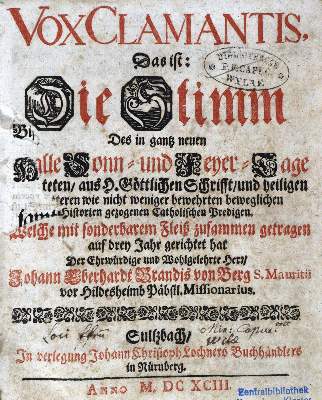 VOX CLAMANTIS,
Das ist:
Die Stimm
Des in gantz neuen
Alle Sonn- und Feyer-Tage
teten/ aus H. Göttlichen Schrifft/ und heiligen
eren wie nicht weniger bewehrten beweglichen
Historien gezogenen Catholischen Predigen.
Welche mit sonderbarem Fleiß zusammen getragen
auf drey Jahr gerichtet hat
Der Ehrwürdige und Wohlgelehrte Herr/
Johann Eberhardt Brandis von Berg S. Mauritii
vor Hildesheimb Päbstl. Missionarius.
Sultzbach/
In verlegung Johann Christoph Lochners Buchhändlers
in Nürnberg.
ANNO M. DC XCIII.
Zentralbibliothek